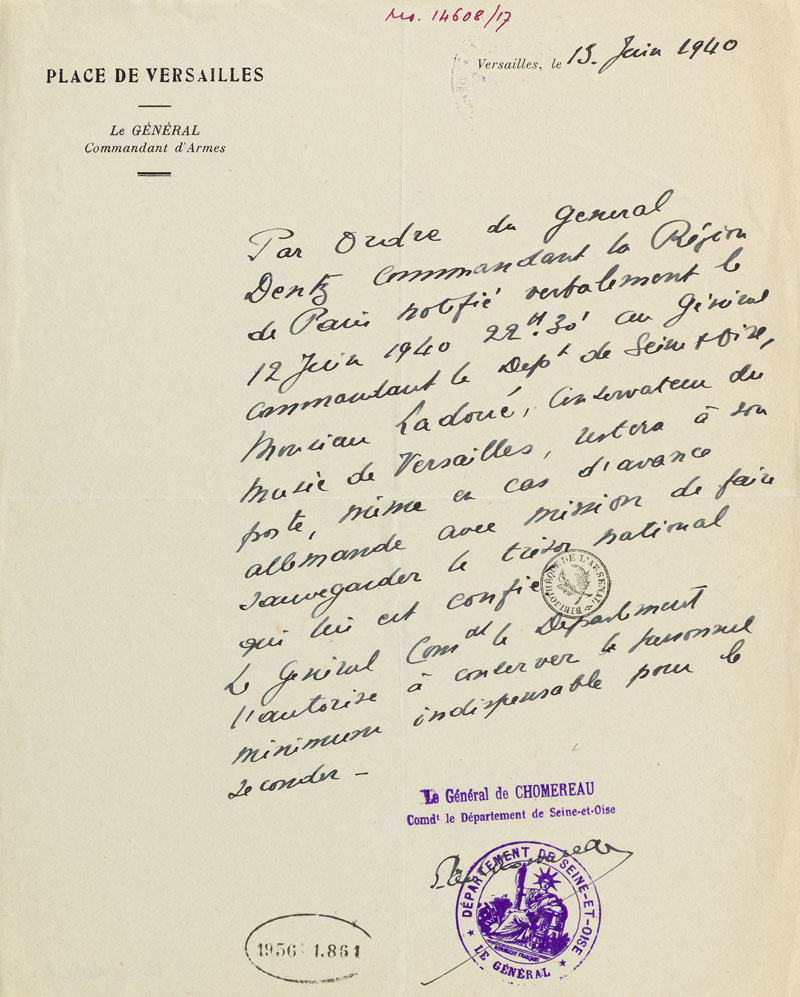 Ms. 14608/17
Versailles, le 13. Juin 1940
PLACE DE VERSAILLES
Le GÉNÉRAL
Commandant d'Armes
Par Ordre du General
Dentz Commandant la Région
de Paris notifié verbalement le
12 Juin 1940 22H.30' au Général
Commandant le Dept de Seine & Oise,
Monsieur Ladoué, Conservateur du
Musée de Versailles, restera à son
poste, même en cas d'avance
allemande avec mission de faire
sauvegarder le trésor national
qui lui est confié
BIBLIOTHÈQUE DE L'ARSENAL
Le Général Comdt le Département
l'autorise à conserver le personnel
minimum indispensable pour le
seconder –
Le Général de CHOMEREAU
Comdt le Département de Seine-et-Oise
DÉPARTEMENT DE SEINE-ET-OISE
RÉPUBLIQUE FRANÇAISE
LE GÉNÉRAL
1956-1.861